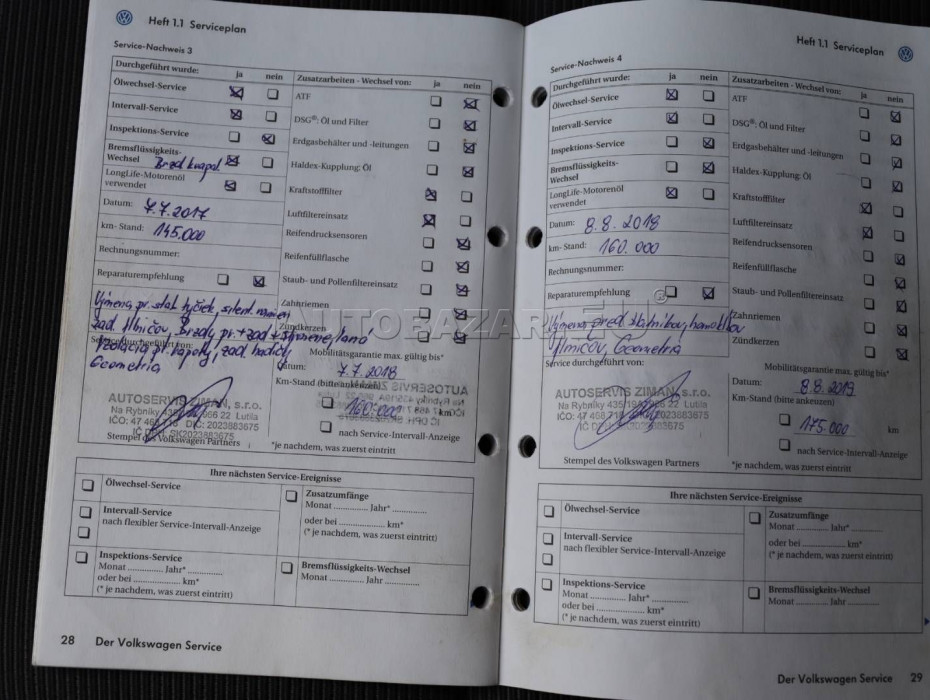 Heft 1.1 Serviceplan
Service-Nachweis 3
Durchgeführt wurde: ja nein
Ölwechsel-Service
Intervall-Service
Inspektions-Service
Bremsflüssigkeits-
Wechsel Brzd. kvapal.
LongLife-Motorenöl
verwendet
Datum: 7.7.2017
km-Stand: 145.000
Rechnungsnummer:
Reparaturempfehlung
Zusatzarbeiten - Wechsel von: ja nein
ATF
DSG®: Öl und Filter
Erdgasbehälter und -leitungen
Haldex-Kupplung: Öl
Kraftstofffilter
Luftfiltereinsatz
Reifendrucksensoren
Reifenfüllflasche
Staub- und Pollenfiltereinsatz
Zahnriemen
Zündkerzen
Výmena pr. stab. tyčiek,
zad. tlmičov, Brzdy pr. + zad +
zad. hadic,
Geometria
Mobilitätsgarantie max. gültig bis*
Datum: 7.7.2018
Km-Stand (bitte ankreuzen)
160.000 km
nach Service-Intervall-Anzeige
*je nachdem, was zuerst eintritt
AUTOSERVIS ZIMAN, s.r.o.
Na Rybníky 966 22 Lutila
IČO: DIČ: 2023883675
IČ DPH: SK2023883675
Stempel des Volkswagen Partners
Ihre nächsten Service-Ereignisse
Ölwechsel-Service
Intervall-Service
nach flexibler Service-Intervall-Anzeige
Inspektions-Service
Monat ............ Jahr* ............
oder bei ............ km*
(* je nachdem, was zuerst eintritt)
Zusatzumfänge
Monat ............ Jahr* ............
oder bei ............ km*
(* je nachdem, was zuerst eintritt)
Bremsflüssigkeits-Wechsel
Monat ............ Jahr ............
28 Der Volkswagen Service
Heft 1.1 Serviceplan
Service-Nachweis 4
Durchgeführt wurde: ja nein
Ölwechsel-Service
Intervall-Service
Inspektions-Service
Bremsflüssigkeits-
Wechsel
LongLife-Motorenöl
verwendet
Datum: 8.8.2018
km-Stand: 160.000
Rechnungsnummer:
Reparaturempfehlung
Zusatzarbeiten - Wechsel von: ja nein
ATF
DSG®: Öl und Filter
Erdgasbehälter und -leitungen
Haldex-Kupplung: Öl
Kraftstofffilter
Luftfiltereinsatz
Reifendrucksensoren
Reifenfüllflasche
Staub- und Pollenfiltereinsatz
Zahnriemen
Zündkerzen
Výmena pred.
Tlmičov, Geometria
Service durchgeführt von:
AUTOSERVIS ZIMAN, s.r.o.
Na Rybníky 966 22 Lutila
IČO: 2023883675
Stempel des Volkswagen Partners
Mobilitätsgarantie max. gültig bis*
Datum: 8.8.2019
Km-Stand (bitte ankreuzen)
175.000 km
nach Service-Intervall-Anzeige
*je nachdem, was zuerst eintritt
Ihre nächsten Service-Ereignisse
Ölwechsel-Service
Intervall-Service
nach flexibler Service-Intervall-Anzeige
Inspektions-Service
Monat ............ Jahr* ............
oder bei ............ km*
(* je nachdem, was zuerst eintritt)
Zusatzumfänge
Monat ............ Jahr* ............
oder bei ............ km*
(* je nachdem, was zuerst eintritt)
Bremsflüssigkeits-Wechsel
Monat ............ Jahr ............
Der Volkswagen Service 29